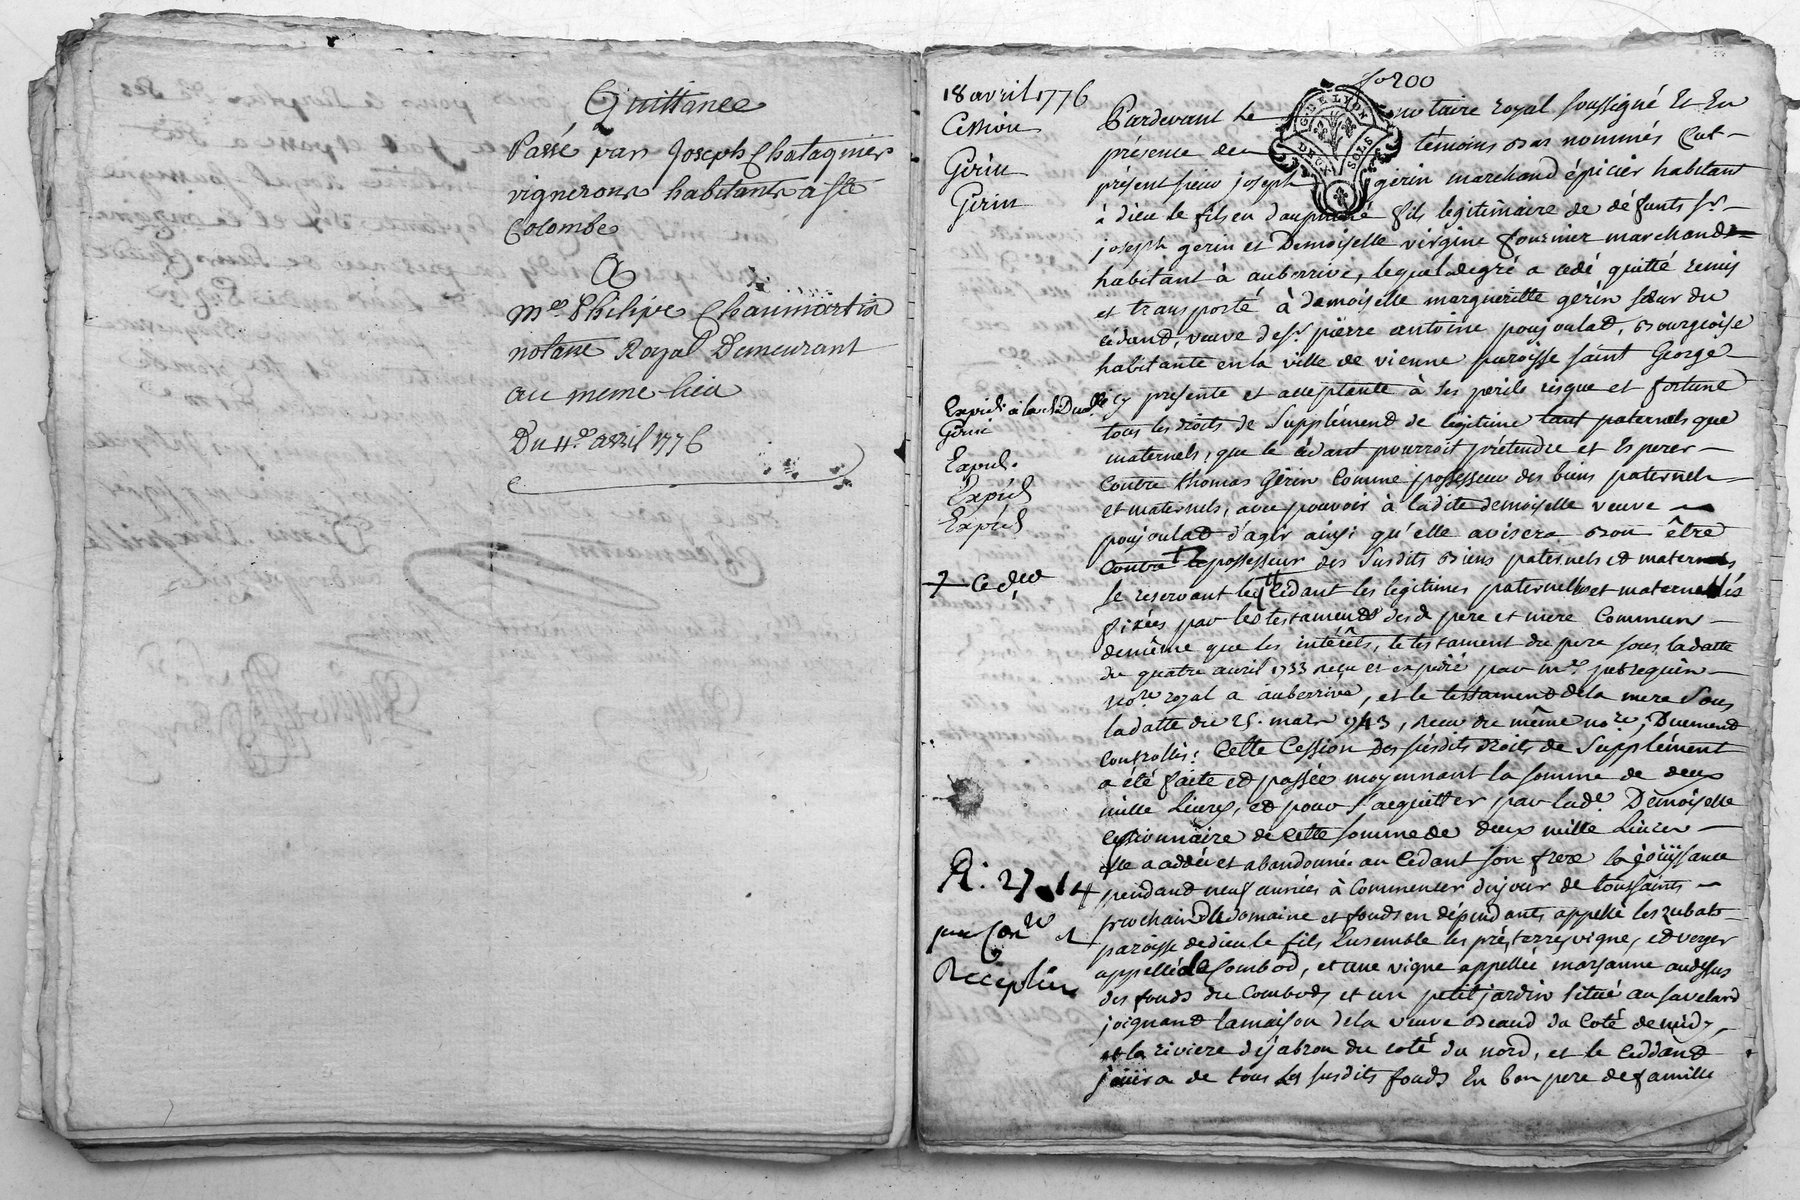 Quittance
Passé par Joseph Chatagnier
vigneron habitant à Ste
Colombe
A
Me Philipe Chaumartin
notaire Royal Demeurant
au meme lieu
Du 11e avril 1776
fo 200
18 avril 1776
Cession
Gerin
Gerin
Expédié à la de Dlle
Gerin
Expéd.
Expéd
Expéd
+ Ce dr
R: 27 14
par Con
Reciplin
GUE LYON
DEUX SOLS
Pardevant le notaire royal soussigné Et En
présence des témoins bas nommés fut
présent sieur joseph gerin marchand épicier habitant
à dieu le fils en dauphiné fils legitimaire de défunts sr
joseph gerin et Demoiselle virgine fournier marchands
habitant à auberrive, lequel de gré a cédé quitté remis
et transporté à demoiselle margueritte gerin sœur du
cédant, veuve de sr pierre antoine poujoulat, bourgeoise
habitante en la ville de vienne paroisse saint George
icy presente et acceptante à ses perils risque et fortune
tous les droits de Supplément de legitime tant paternels que
maternels, que le cédant pourroit prétendre et Esperer
Contre thomas Gérin Comme possesseur des biens paternels
et maternels, avec pouvoir à ladite demoiselle veuve
poujoulat d'agir ainsi qu'elle avisera bon être
Contre le possesseur des Susdits biens paternels et maternels
se reservant le Cédant les legitimes paternelles et maternelles
fixées par les testaments desd pere et mere Communs
demême que les intérêts, le testament du pere sous la datte
du quatre avril 1733 reçu et expédié par me
nore royal a auberrive, et le testament de la mere Sous
la datte du 25 mars 1743, recu du même nore, Duement
Controllés: Cette Cession des susdits droits de Supplément
a été faite et passée moyennant la somme de deux
mille Livres, et pour s'acquitter par lade Demoiselle
Cessionnaire de cette somme de deux mille Livres
elle a cédée et abandonnée au Cedant son frere la joüissance
pendant neuf années à Commencer du jour de toussaints
prochain le domaine et fonds en dépendants appellé les rubats
paroisse de dieu le fils Ensemble les prés, terres, vigne, et verger
appellé le Combod, et une vigne appellée marsanne audessus
des fonds du Combod, et un petit jardin situé au savelard
joignant la maison de la veuve beaud du Coté de midy
et la riviere du côté du nord, et le Ceddant
joüira de tous les susdits fonds En bon pere de famille